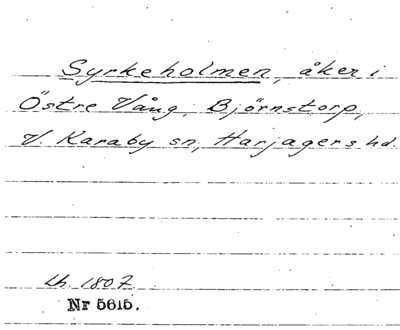 Syrkeholmen, åker i
Östre Vång, Björnstorp,
V. Karaby sn, Harjagers hd.
Lh. 1807
Nr 5615.